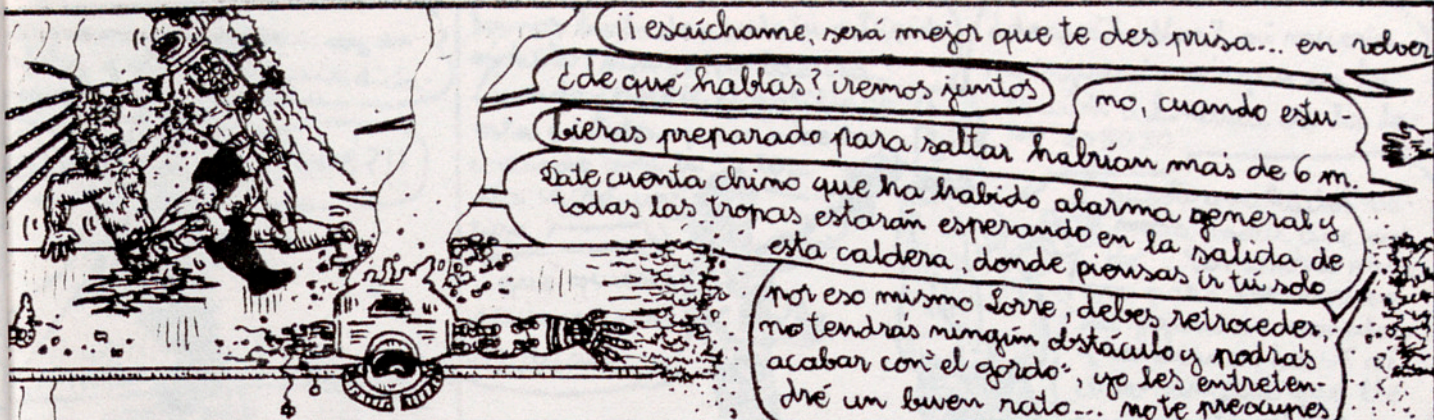 ¡¡ escúchame, será mejor que te des prisa... en volver
¿de qué hablas? iremos juntos
no, cuando estu-
bieras preparado para saltar habrían mas de 6 m.
Date cuenta chino que ha habido alarma general y
todas las tropas estarán esperando en la salida de
esta caldera, donde piensas ir tú solo
por eso mismo Lorre, debes retroceder,
no tendrás ningún obstáculo y podrás
acabar con "el gordo", yo les entreten-
dré un buen rato... no te preocupes